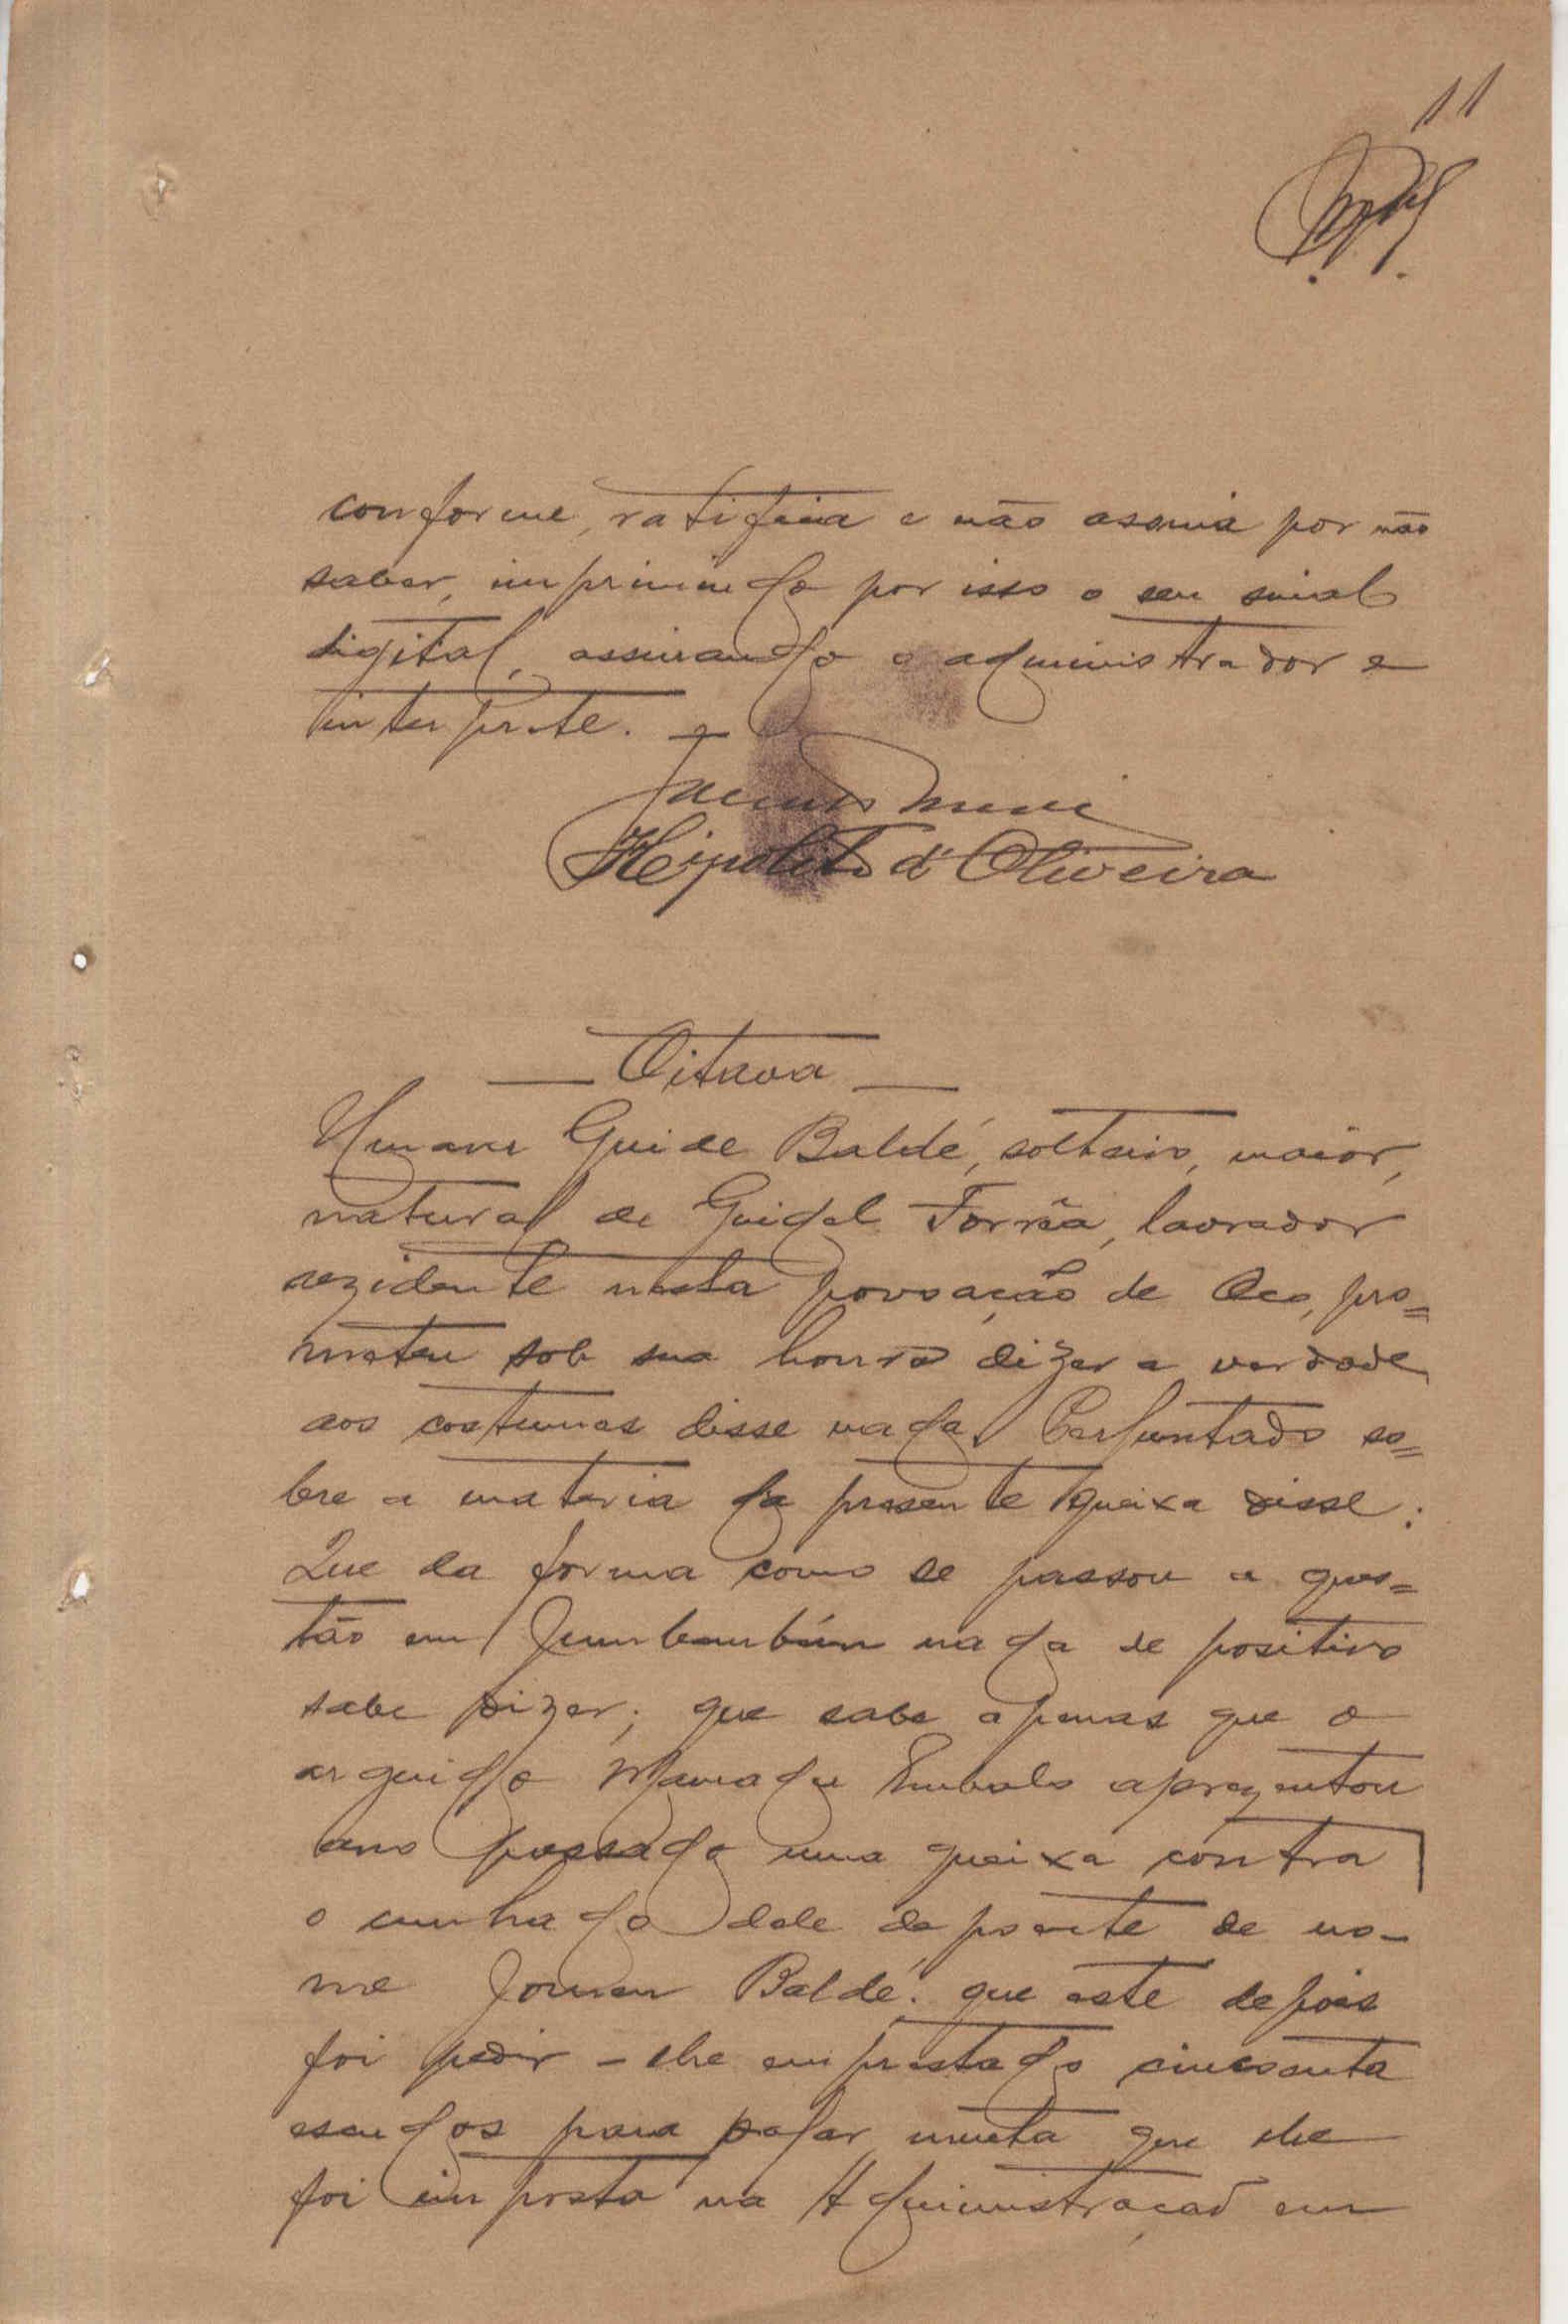 11
conforme, ratifica e não assina por não
saber, imprimindo por isso o seu sinal
digital, assinando o administrador e
interprete.
Hipolito d'Oliveira
— Oitava —
Guide Baldé, solteiro, maior,
natural de Guidel Torrãa, lavrador
rezidente nesta povoação de Oco, pro=
meteu sob sua honra dizer a verdade
aos costumes disse nada. Perguntado so=
bre a materia da presente queixa disse:
Que da forma como se passou a ques=
tão em Jumbembém nada de positivo
sabe dizer; que sabe apenas que o
arguido Mamadu Embalo aprezentou
ano passado uma queixa contra
o cunhado dele depoente de no-
me Baldé; que este depois
foi pedir-lhe emprestado cincoenta
escudos para pagar multa que lhe
foi imposta na Administração em